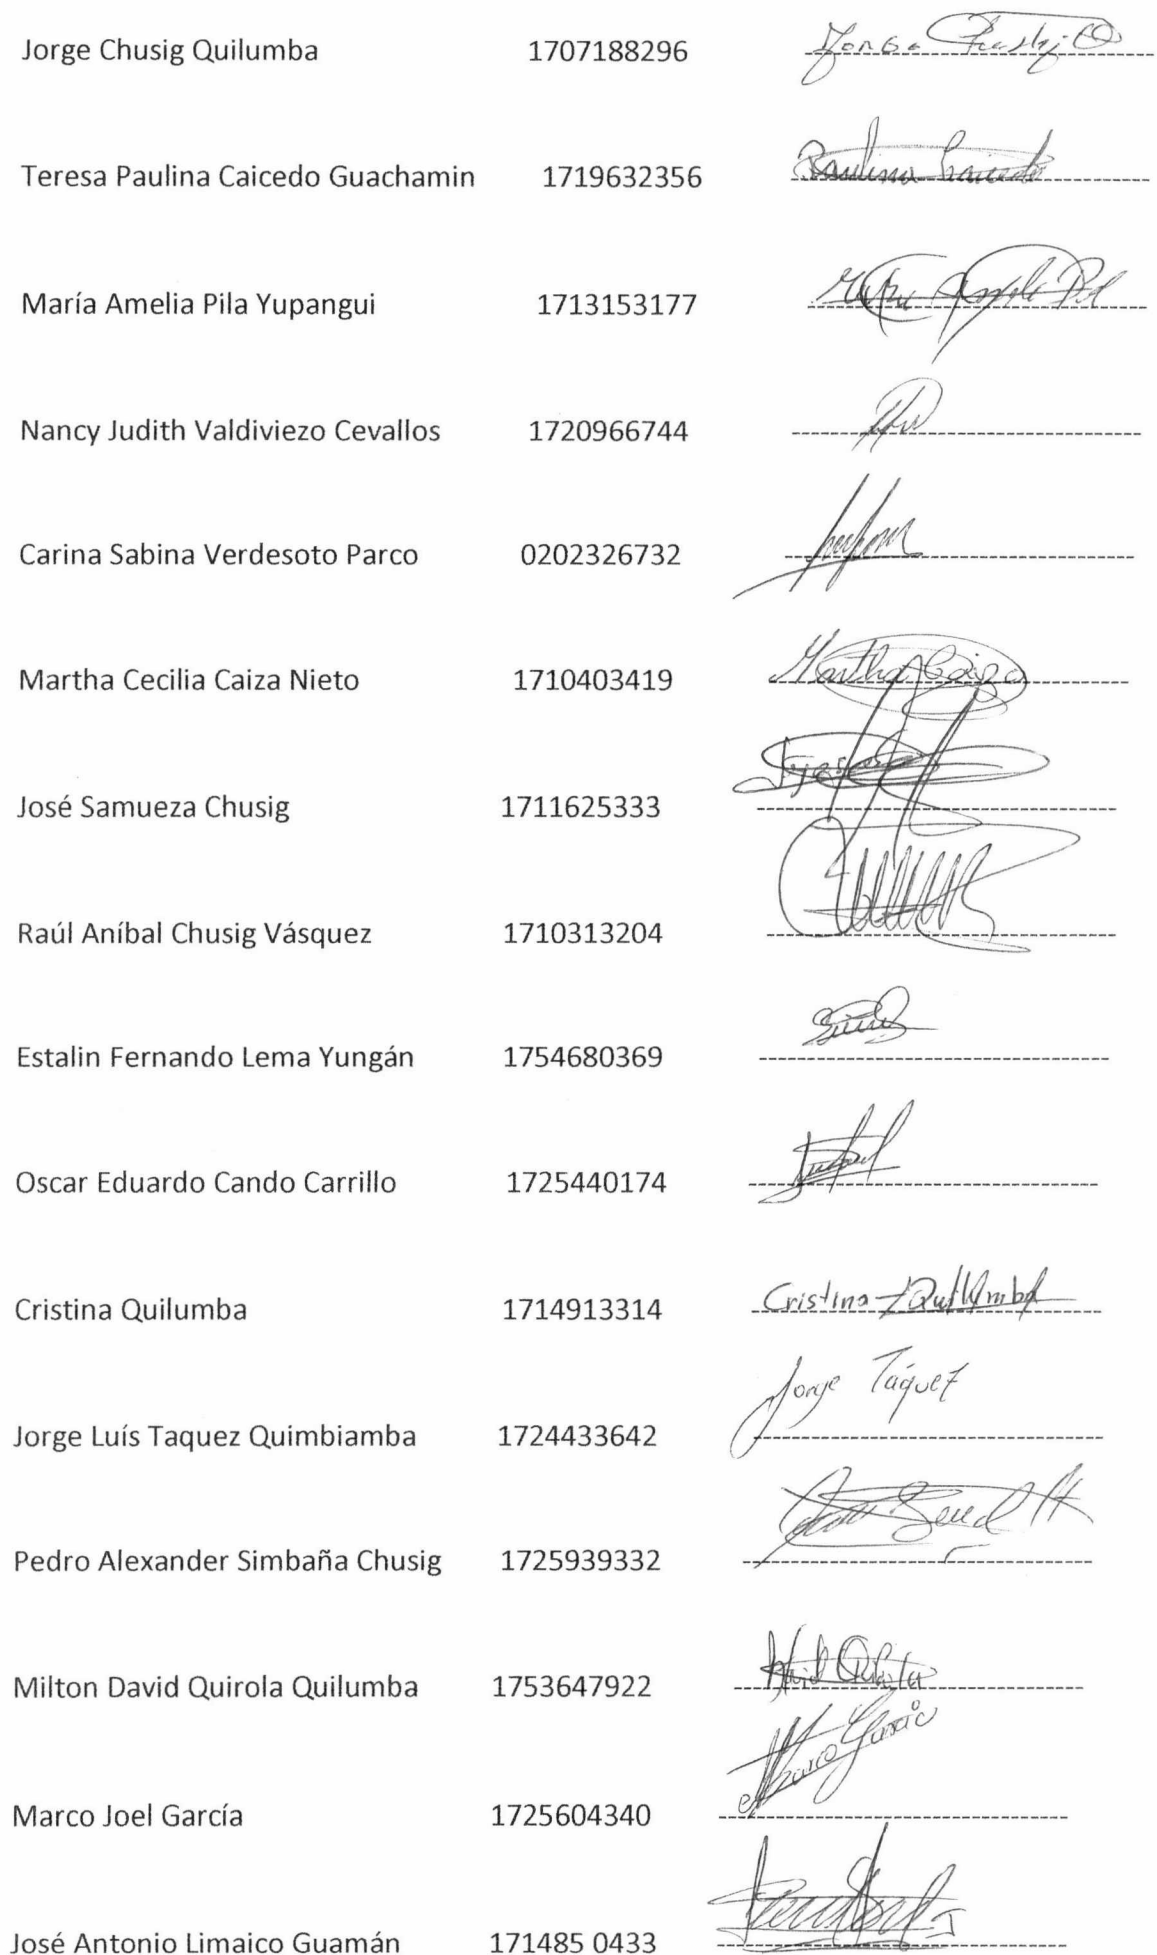 Jorge Chusig Quilumba 1707188296 Jorge Chusig Q
Teresa Paulina Caicedo Guachamin 1719632356 Paulina Caicedo
María Amelia Pila Yupangui 1713153177
Nancy Judith Valdiviezo Cevallos 1720966744
Carina Sabina Verdesoto Parco 0202326732
Martha Cecilia Caiza Nieto 1710403419 Martha Caiza
José Samueza Chusig 1711625333
Raúl Aníbal Chusig Vásquez 1710313204
Estalin Fernando Lema Yungán 1754680369
Oscar Eduardo Cando Carrillo 1725440174
Cristina Quilumba 1714913314 Cristina Quilumba
Jorge Luís Taquez Quimbiamba 1724433642 Jorge Táquez
Pedro Alexander Simbaña Chusig 1725939332
Milton David Quirola Quilumba 1753647922 David Quirola
Marco Joel García 1725604340 Marco García
José Antonio Limaico Guamán 171485 0433